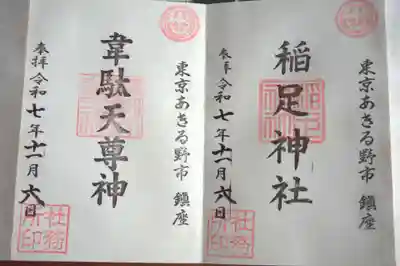 東京あきる野市 鎮座
稲足神社
奉拝 令和七年十一月六日
東京あきる野市 鎮座
韋駄天尊神
奉拝 令和七年十一月六日
社務所印
社務所印